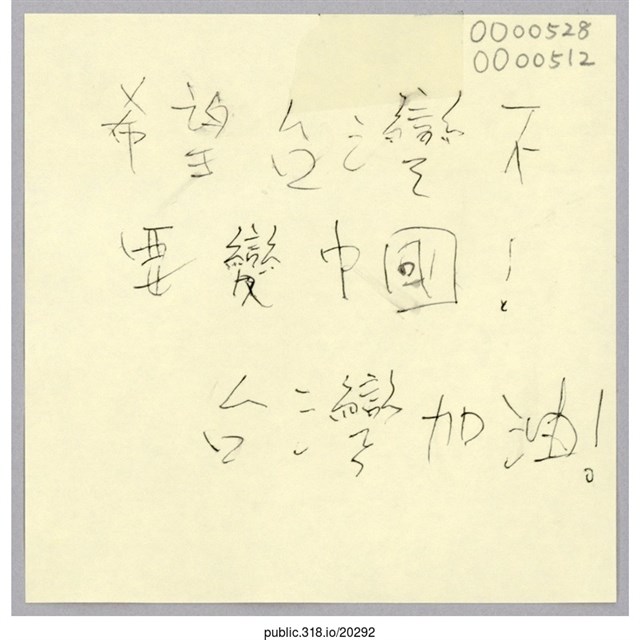 0000528
0000512
希望台灣不
要變中國!
台灣加油!
public.318.io/20292